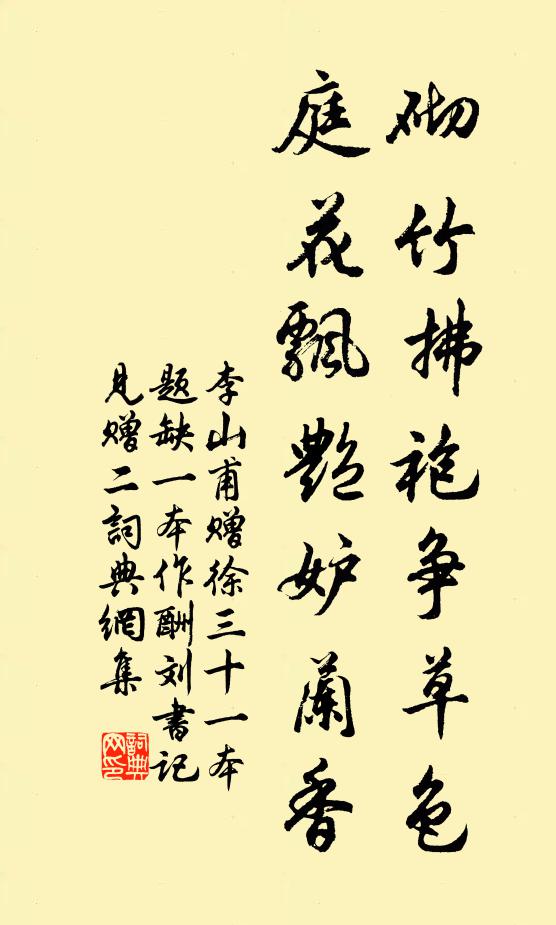 砌竹拂袍争草色
庭花飄艷妒蘭香
李山甫赠徐三十一本
题缺一本作酬刘書记
見赠二詞典網集
詞典网印